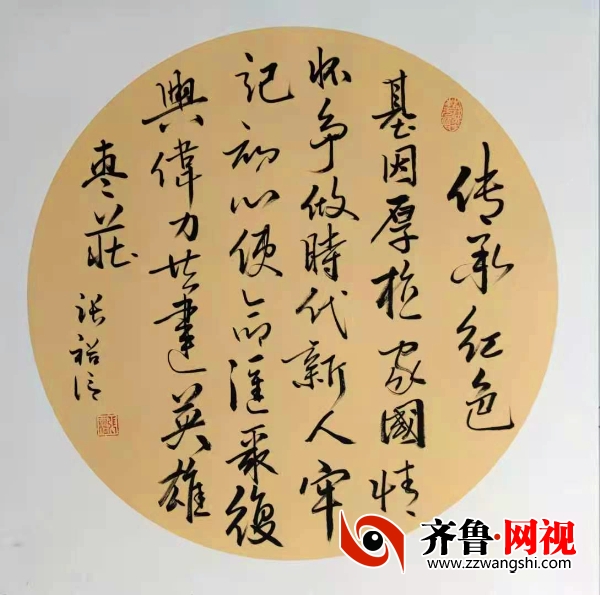 传承红色
基因厚植家國情
怀争做時代新人牢
记初心使命匯聚復
興偉力共建英雄
枣莊
张裕信
齐鲁·网视
www.zzwangshi.com